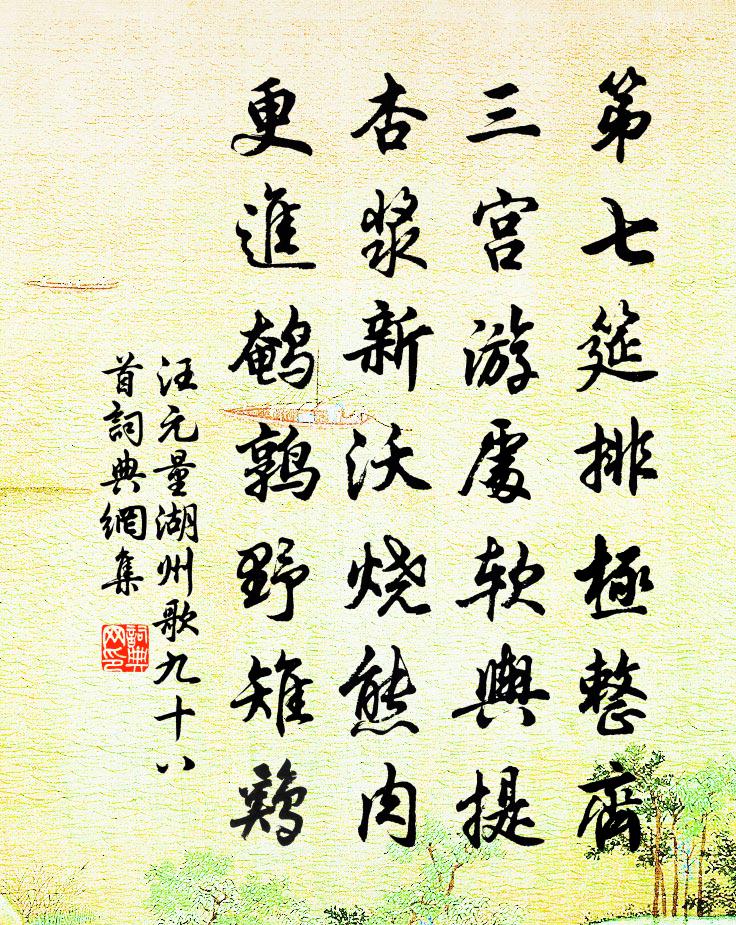 第七筵排極整齊
三宮游處軟輿提
杏漿新沃烧熊肉
更進鵪鶉野雉鷄
汪元量湖州歌九十八
首詞典網集
詞典
网印